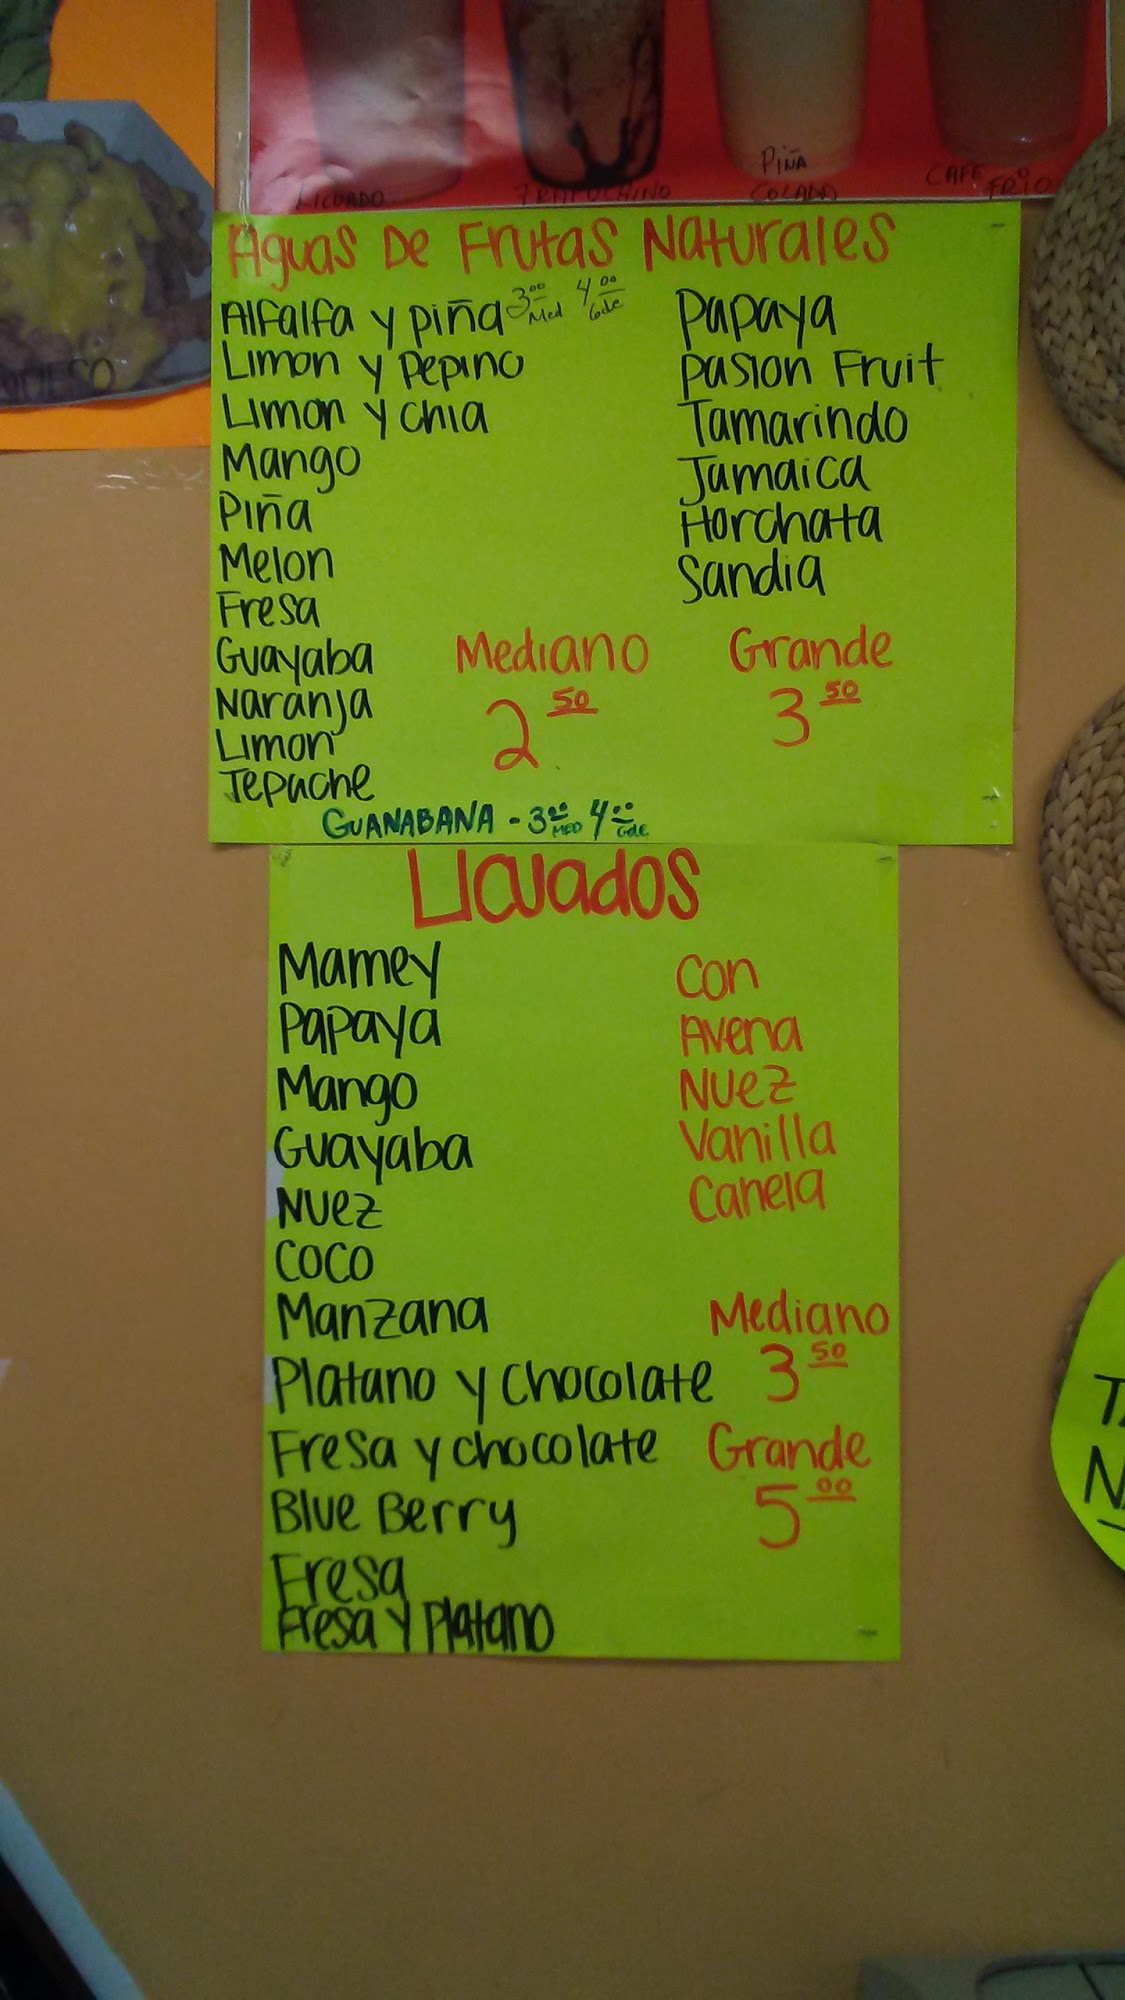 LICUADO
PIÑA COLADA
CAFE FRIO
Aguas De Frutas Naturales
Alfalfa y piña 3.00 Med 4.00 Gde
Limon y Pepino
Limon y chia
Mango
Piña
Melon
Fresa
Guayaba
Naranja
Limon
Tepache
Papaya
Pasion Fruit
Tamarindo
Jamaica
Horchata
Sandia
Mediano
2 50
Grande
3 50
GUANABANA - 3.00 MED 4.00 Gde
Licuados
Mamey
Papaya
Mango
Guayaba
Nuez
Coco
Manzana
Platano y Chocolate
Fresa y chocolate
Blue Berry
Fresa
Fresa y Platano
Con
Avena
Nuez
Vanilla
Canela
Mediano
3 50
Grande
5 00